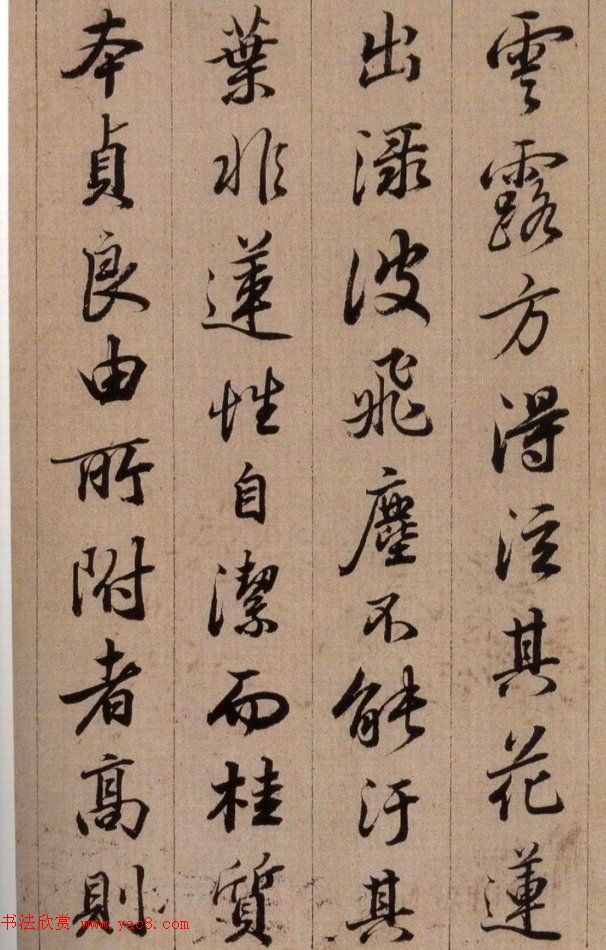 雲露方得泫其花蓮
出淥波飛塵不能汙其
葉非蓮性自潔而桂質
本貞良由所附者高則
书法欣赏 www.yac8.com